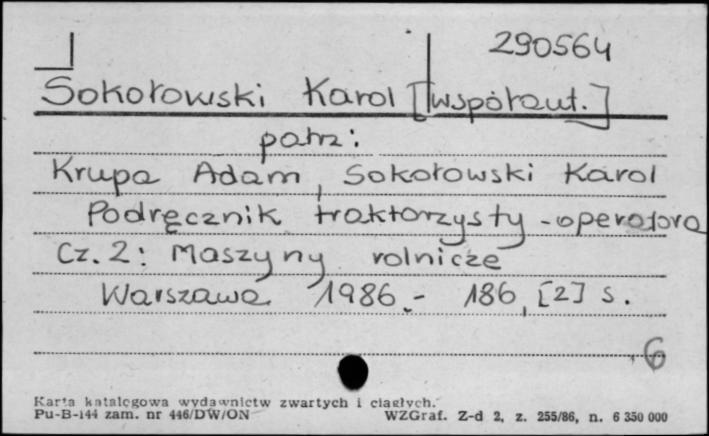 290564
Sokołowski Karol [współaut.]
patrz:
Krupa Adam, Sokołowski Karol
Podręcznik traktorzysty-operatora
Cz. 2: Maszyny rolnicze
Warszawa 1986.- 186, [2] s.
6
Karta katalogowa wydawnictw zwartych i ciągłych.
Pu-B-144 zam. nr 446/DW/ON WZGraf. Z-d 2, z. 255/86, n. 6 350 000